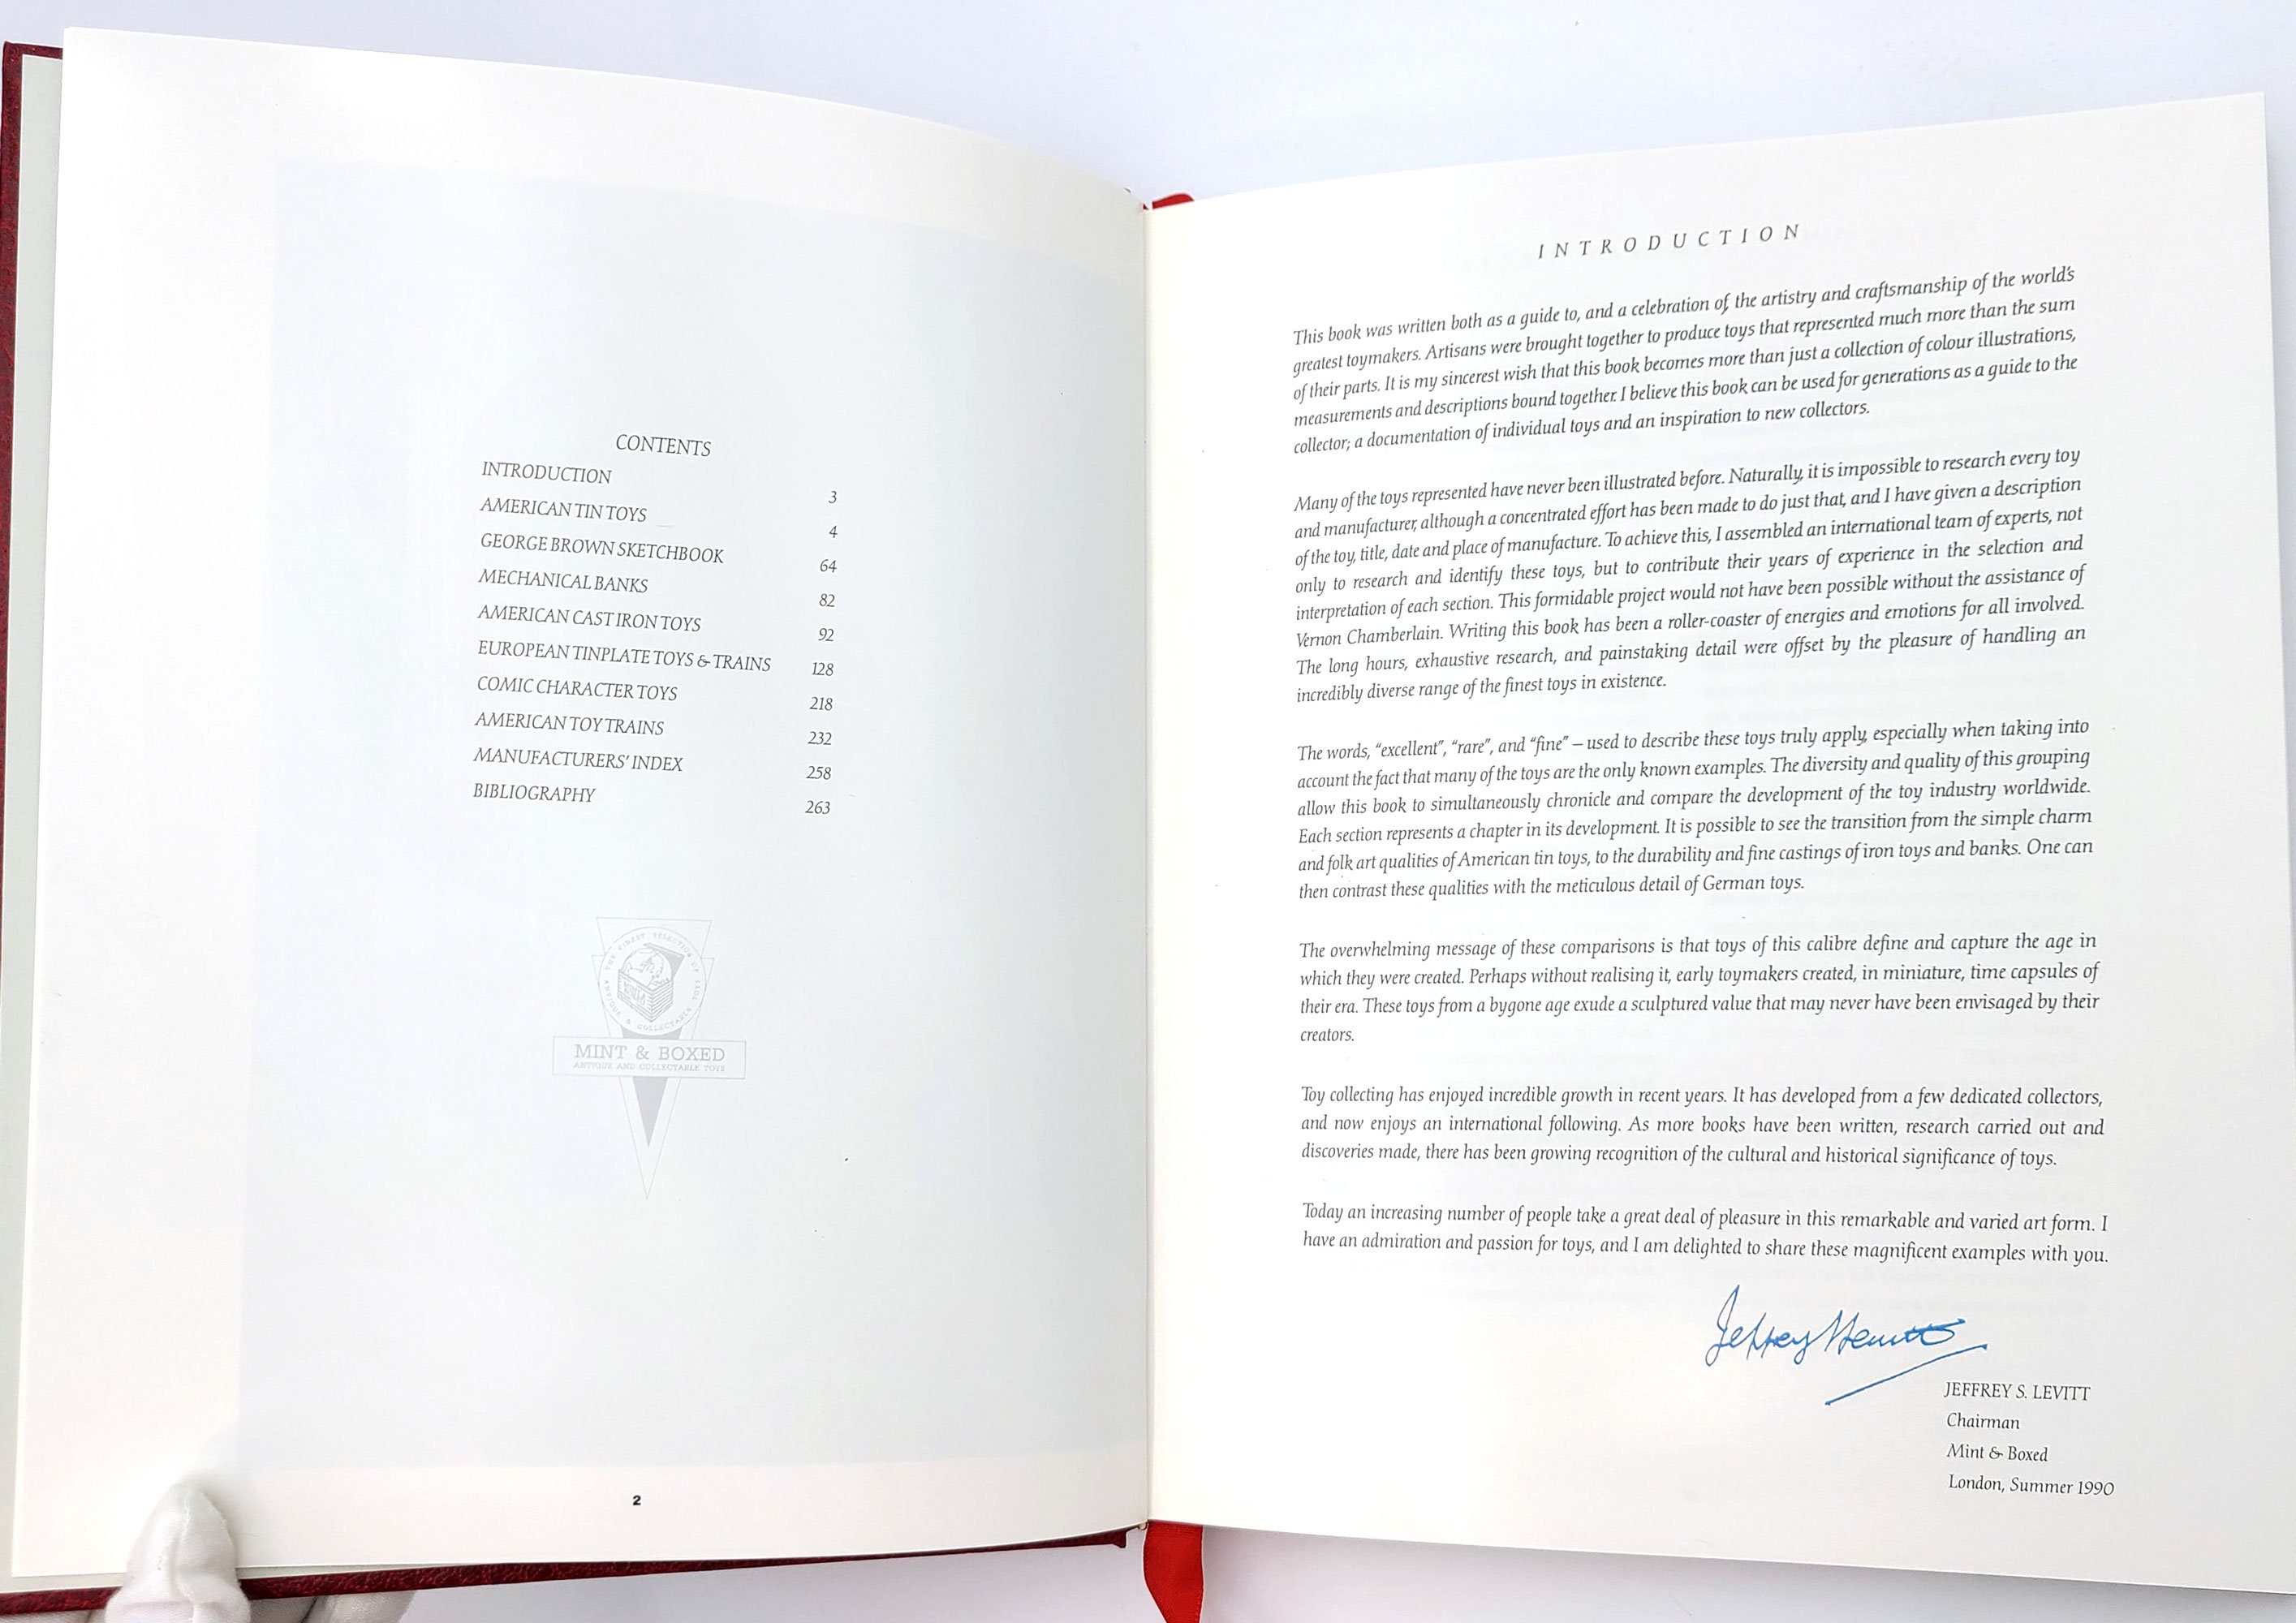 CONTENTS
INTRODUCTION 3
AMERICAN TIN TOYS 4
GEORGE BROWN SKETCHBOOK 64
MECHANICAL BANKS 82
AMERICAN CAST IRON TOYS 92
EUROPEAN TINPLATE TOYS & TRAINS 128
COMIC CHARACTER TOYS 218
AMERICAN TOY TRAINS 232
MANUFACTURERS' INDEX 258
BIBLIOGRAPHY 263
THE FINEST SELECTION OF
ANTIQUE & COLLECTABLE TOYS
MINT & BOXED
ANTIQUE AND COLLECTABLE TOYS
2
INTRODUCTION
This book was written both as a guide to, and a celebration of, the artistry and craftsmanship of the world's
greatest toymakers. Artisans were brought together to produce toys that represented much more than the sum
of their parts. It is my sincerest wish that this book becomes more than just a collection of colour illustrations,
measurements and descriptions bound together. I believe this book can be used for generations as a guide to the
collector; a documentation of individual toys and an inspiration to new collectors.
Many of the toys represented have never been illustrated before. Naturally, it is impossible to research every toy
and manufacturer, although a concentrated effort has been made to do just that, and I have given a description
of the toy, title, date and place of manufacture. To achieve this, I assembled an international team of experts, not
only to research and identify these toys, but to contribute their years of experience in the selection and
interpretation of each section. This formidable project would not have been possible without the assistance of
Vernon Chamberlain. Writing this book has been a roller-coaster of energies and emotions for all involved.
The long hours, exhaustive research, and painstaking detail were offset by the pleasure of handling an
incredibly diverse range of the finest toys in existence.
The words, "excellent", "rare", and "fine" – used to describe these toys truly apply, especially when taking into
account the fact that many of the toys are the only known examples. The diversity and quality of this grouping
allow this book to simultaneously chronicle and compare the development of the toy industry worldwide.
Each section represents a chapter in its development. It is possible to see the transition from the simple charm
and folk art qualities of American tin toys, to the durability and fine castings of iron toys and banks. One can
then contrast these qualities with the meticulous detail of German toys.
The overwhelming message of these comparisons is that toys of this calibre define and capture the age in
which they were created. Perhaps without realising it, early toymakers created, in miniature, time capsules of
their era. These toys from a bygone age exude a sculptured value that may never have been envisaged by their
creators.
Toy collecting has enjoyed incredible growth in recent years. It has developed from a few dedicated collectors,
and now enjoys an international following. As more books have been written, research carried out and
discoveries made, there has been growing recognition of the cultural and historical significance of toys.
Today an increasing number of people take a great deal of pleasure in this remarkable and varied art form. I
have an admiration and passion for toys, and I am delighted to share these magnificent examples with you.
JEFFREY S. LEVITT
Chairman
Mint & Boxed
London, Summer 1990